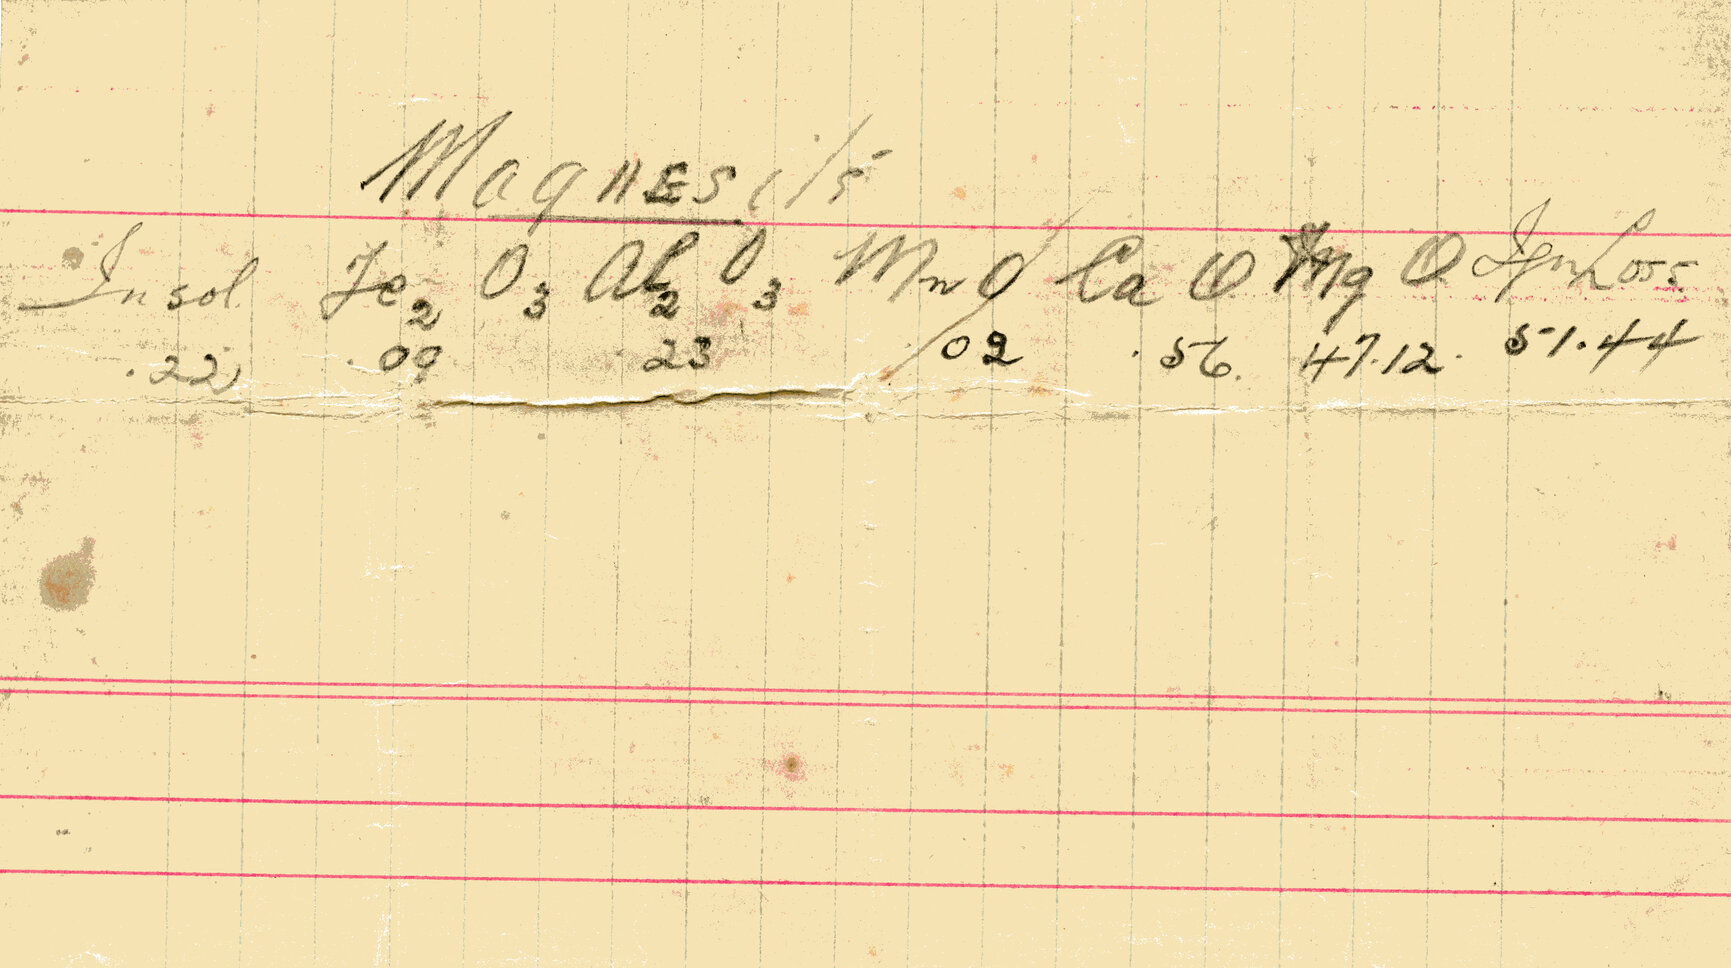 Magnesite
Insol. Fe2O3 Al2O3 MnO CaO MgO Ign Loss
.22 .09 .23 .02 .56. 47.12. 51.44